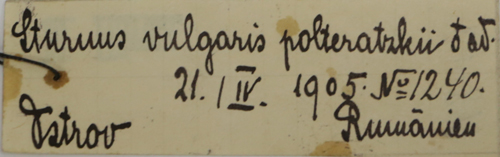 Sturnus vulgaris polteratzkii ♂ ad.
21. / IV. 1905. № 1240.
Ostrov Rumänien